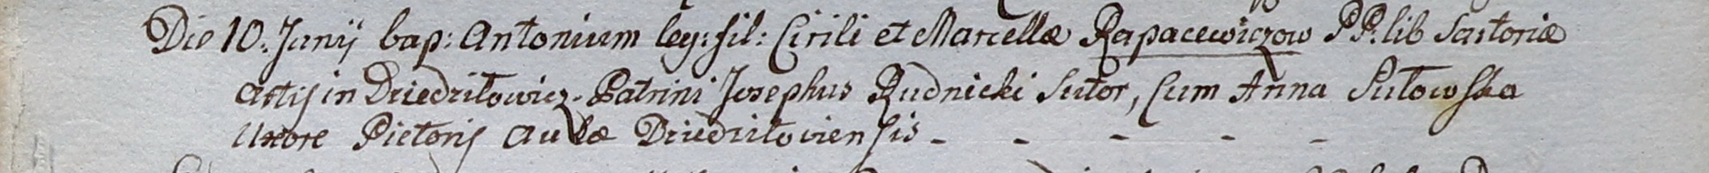 Die 10. Junij bap: Antonium leg: fil: Cirili et Marcellæ Rapacewiczow PP. lib Sartoriæ
Artis in Dziedziłowicz. Patrini Josephus Rudnicki Sutor, Cum Anna Sutowska
Uxore Pictoris Aulæ Dziedziłoviensis - - - - -